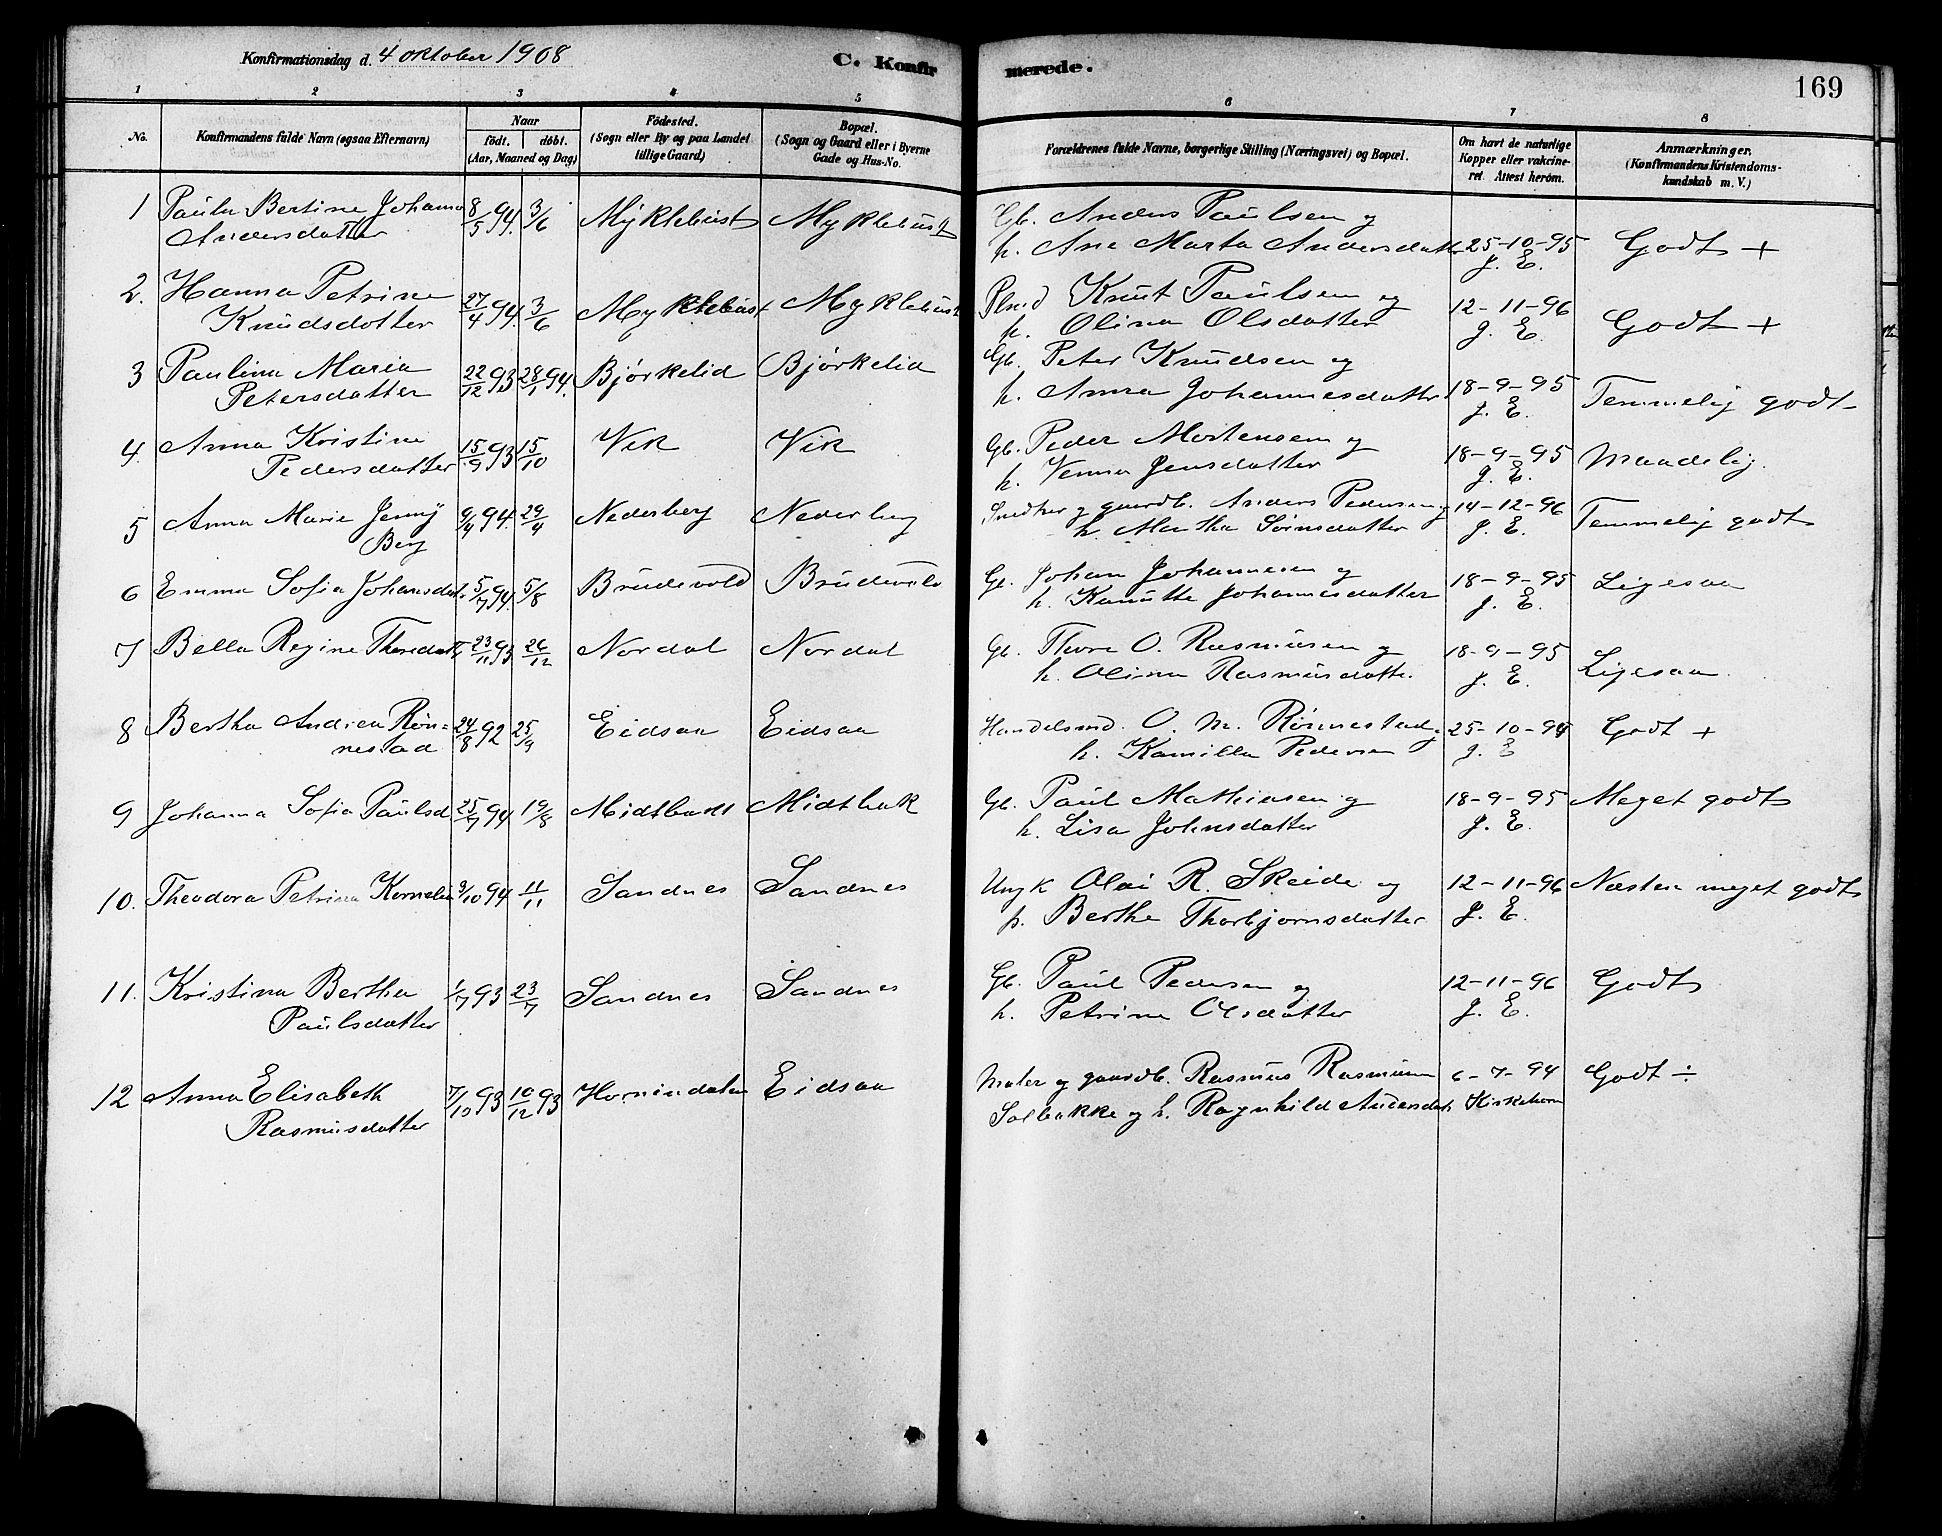 Konfirmationsdag d. 4 oktober 1908
C. Konfirmerede.
169
1 2 3 4 5 6 7 8
No.
Konfirmandens fulde Navn (ogsaa Efternavn)
Naar
födt. döbt.
(Aar, Maaned og Dag)
Födested.
(Sogn eller By og paa Landet
tillige Gaard)
Bopæl.
(Sogn og Gaard eller i Byerne
Gade og Hus-No.
Forældrenes fulde Navne, borgerlige Stilling (Næringsvei) og Bopæl.
Om havt de naturlige
Kopper eller vakcine-
ret. Attest herom.
Anmærkninger.
(Konfirmandens Kristendoms-
kundskab m. V.)
1 Paula Bertine Johanna 8/5 94. 3/6 Myklebust Myklebust Gb. Anders Paulsen og
Andersdatter h. Ane Marta Andersdatter 25-10-95 Godt +
J. E.
2. Hanna Petrine 27/4 94. 3/6 Myklebust Myklebust Knut Paulsen og 12-11-96
Knudsdotter h. Olina Olsdatter J. E. Godt +
3 Paulina Maria 22/12 93 28/1 94. Bjørkelid Bjørkelid Gb. Peter Knudsen og
Petersdatter h. Anna Johannesdatter 18-9-95 Temmelig godt
J. E.
4. Anna Kristine 15/9 93 15/10 Vik Vik Gb. Peder Mortensen og
Pedersdatter h. Jensdatter 18-9-95 Maadelig.
J. E.
5 Anna Marie Jenny 9/4 94. 29/4 Nederberg Nederberg Snedker og gaardb. Anders Pedersen og 14-12-96 Temmelig godt
Berg h. Martha Sørinsdatter J. E.
6 Emma Sofia Johansdat. 5/7 94. 5/8 Brudevold Brudevold Gb. Johan Johannesen og 18-9-95 Ligesaa
h. Kanutte Johannesdatter J. E.
7 Bella Regine Thoredatt 23/11 93 26/12 Nordal Nordal Gb. Thore O. Rasmusen og 18-9-95
h. Olina Rasmusdatte. J. E. Ligesaa.
8 Bertha Andrea Røn= 24/8 92 25/9 Eidsaa Eidsaa Handelsmd. O. M. Rønnestad og 25-10-94 Godt +
nestad h. Kamilla Pedersen J. E
9 Johanna Sofia Paulsd 25/7 94 19/8 Midtbak Midtbak Gb. Paul Mathiasen og 18-9-95 Meget godt
h. Lisa Johnsdatter J. E.
10. Theodora Petrina Kornelia 3/10 94. 11/11 Sandnes Sandnes Ungk Olai R. Skeide og 12-11-96 Næsten meget godt
p. Berthe Thorbjørnsdatter J. E.
11. Kristina Bertha 1/7 93 23/7 Sandnes Sandnes Gb. Paul Pedersen og 12-11-96 Godt
Paulsdatter h. Petrine Olsdatter J. E.
12 Anna Elisabeth 7/10 93 10/12 93 Hornindalen Eidsaa Maler og gaardb. Rasmus Rasmusen 6-7-94 Godt ÷
Rasmusdatter Solbakke og h. Ragnhild Andersdat.